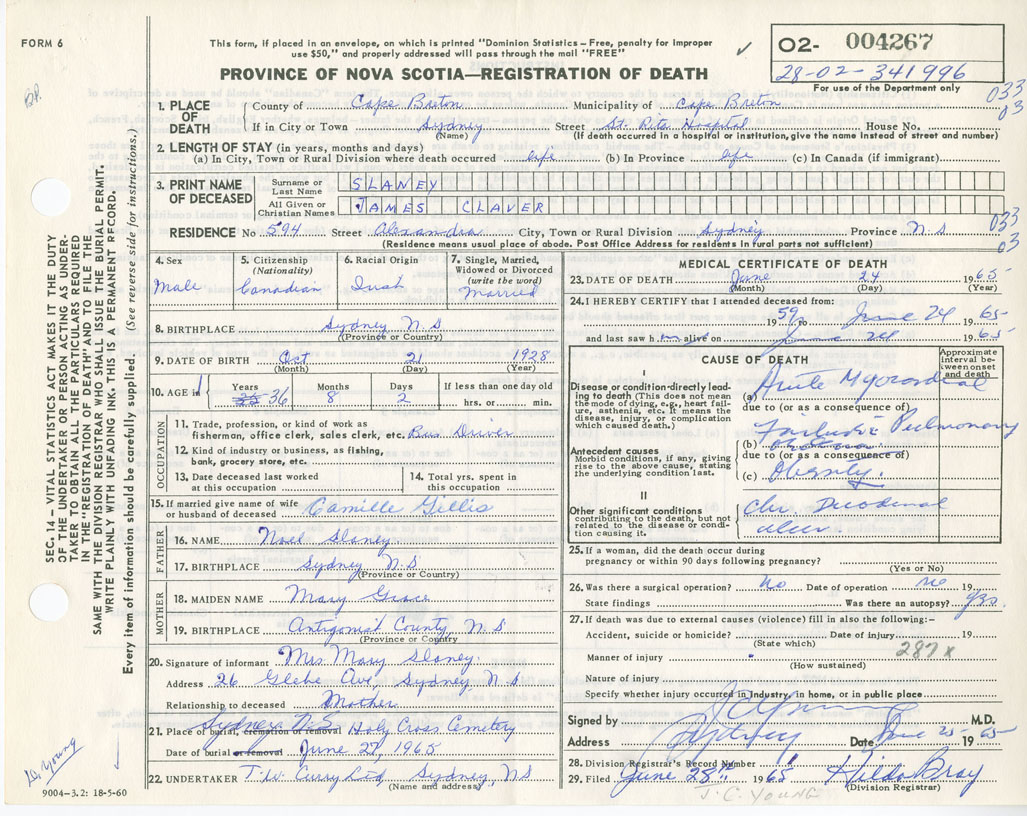 FORM 6
This form, if placed in an envelope, on which is printed "Dominion Statistics—Free, penalty for improper
use $50," and properly addressed will pass through the mail "FREE"
✓
02- 004267
28-02-341996
For use of the Department only
PROVINCE OF NOVA SCOTIA—REGISTRATION OF DEATH
033
03
1. PLACE OF DEATH
County of Cape Breton Municipality of Cape Breton
If in City or Town Sydney Street St. Rita Hospital House No.
(Name) (If death occurred in a hospital or institution, give the name instead of street and number)
2. LENGTH OF STAY (in years, months and days)
(a) In City, Town or Rural Division where death occurred life (b) In Province life (c) In Canada (if immigrant)
3. PRINT NAME OF DECEASED
Surname or Last Name SLANEY
All Given or Christian Names JAMES CLAVER
RESIDENCE No 594 Street Alexandra City, Town or Rural Division Sydney Province N S
033
03
(Residence means usual place of abode. Post Office Address for residents in rural parts not sufficient)
4. Sex
Male
5. Citizenship
(Nationality)
Canadian
6. Racial Origin
Irish
7. Single, Married,
Widowed or Divorced
(write the word)
Married
8. BIRTHPLACE Sydney N.S
(Province or Country)
9. DATE OF BIRTH Oct 21 1928
(Month) (Day) (Year)
10. AGE is
Years Months Days If less than one day old
35 36 8 2 hrs. or min.
OCCUPATION
11. Trade, profession, or kind of work as
fisherman, office clerk, sales clerk, etc. Bus Driver
12. Kind of industry or business, as fishing,
bank, grocery store, etc.
13. Date deceased last worked
at this occupation
14. Total yrs. spent in
this occupation
15. If married give name of wife
or husband of deceased Camille Gillis
FATHER
16. NAME Noel Slaney
17. BIRTHPLACE Sydney N.S
(Province or Country)
MOTHER
18. MAIDEN NAME Mary Grace
19. BIRTHPLACE Antigonish County, N S
(Province or Country)
20. Signature of informant Mrs Mary Slaney.
Address 26 Glebe Ave, Sydney N.S
Relationship to deceased Mother
Sydney N.S
21. Place of burial, cremation or removal Holy Cross Cemetery
Date of burial or removal June 27, 1965
22. UNDERTAKER T.W. Curry Ltd Sydney, NS
(Name and address)
MEDICAL CERTIFICATE OF DEATH
23. DATE OF DEATH June 24 1965
(Month) (Day) (Year)
24. I HEREBY CERTIFY that I attended deceased from:
1959 to June 24 1965
and last saw him alive on June 24 1965
CAUSE OF DEATH
Approximate
interval be-
tween onset
and death
I
Disease or condition directly lead-
ing to death (This does not mean
the mode of dying, e.g., heart fail-
ure, asthenia, etc. It means the
disease, injury, or complication
which caused death.)
(a) Acute Myocardial
due to (or as a consequence of)
Failure Pulmonary
(b)
due to (or as a consequence of)
Antecedent causes
Morbid conditions, if any, giving
rise to the above cause, stating
the underlying condition last.
(c) Obesity.
II
Other significant conditions
contributing to the death, but not
related to the disease or condi-
tion causing it.
Chr. Duodenal
ulcer.
25. If a woman, did the death occur during
pregnancy or within 90 days following pregnancy?
(Yes or No)
26. Was there a surgical operation? No Date of operation No 19
State findings Was there an autopsy? Yes.
27. If death was due to external causes (violence) fill in also the following:-
Accident, suicide or homicide? Date of injury 19
(State which)
287x
Manner of injury
(How sustained)
Nature of injury
Specify whether injury occurred in industry, in home, or in public place
Signed by J C Young M.D.
Address Sydney Date June 25 1965
28. Division Registrar's Record Number
29. Filed June 28th 1965 Hilda Bray
(Division Registrar)
J. C. YOUNG
SEC. 14—VITAL STATISTICS ACT MAKES IT THE DUTY
OF THE UNDERTAKER OR PERSON ACTING AS UNDER-
TAKER TO OBTAIN ALL THE PARTICULARS REQUIRED
IN THE "REGISTRATION OF DEATH" AND TO FILE THE
SAME WITH THE DIVISION REGISTRAR WHO SHALL ISSUE THE BURIAL PERMIT.
WRITE PLAINLY WITH UNFADING INK—THIS IS A PERMANENT RECORD.
Every item of information should be carefully supplied. (See reverse side for instructions.)
Dr. Young
9004-3.2: 18-5-60